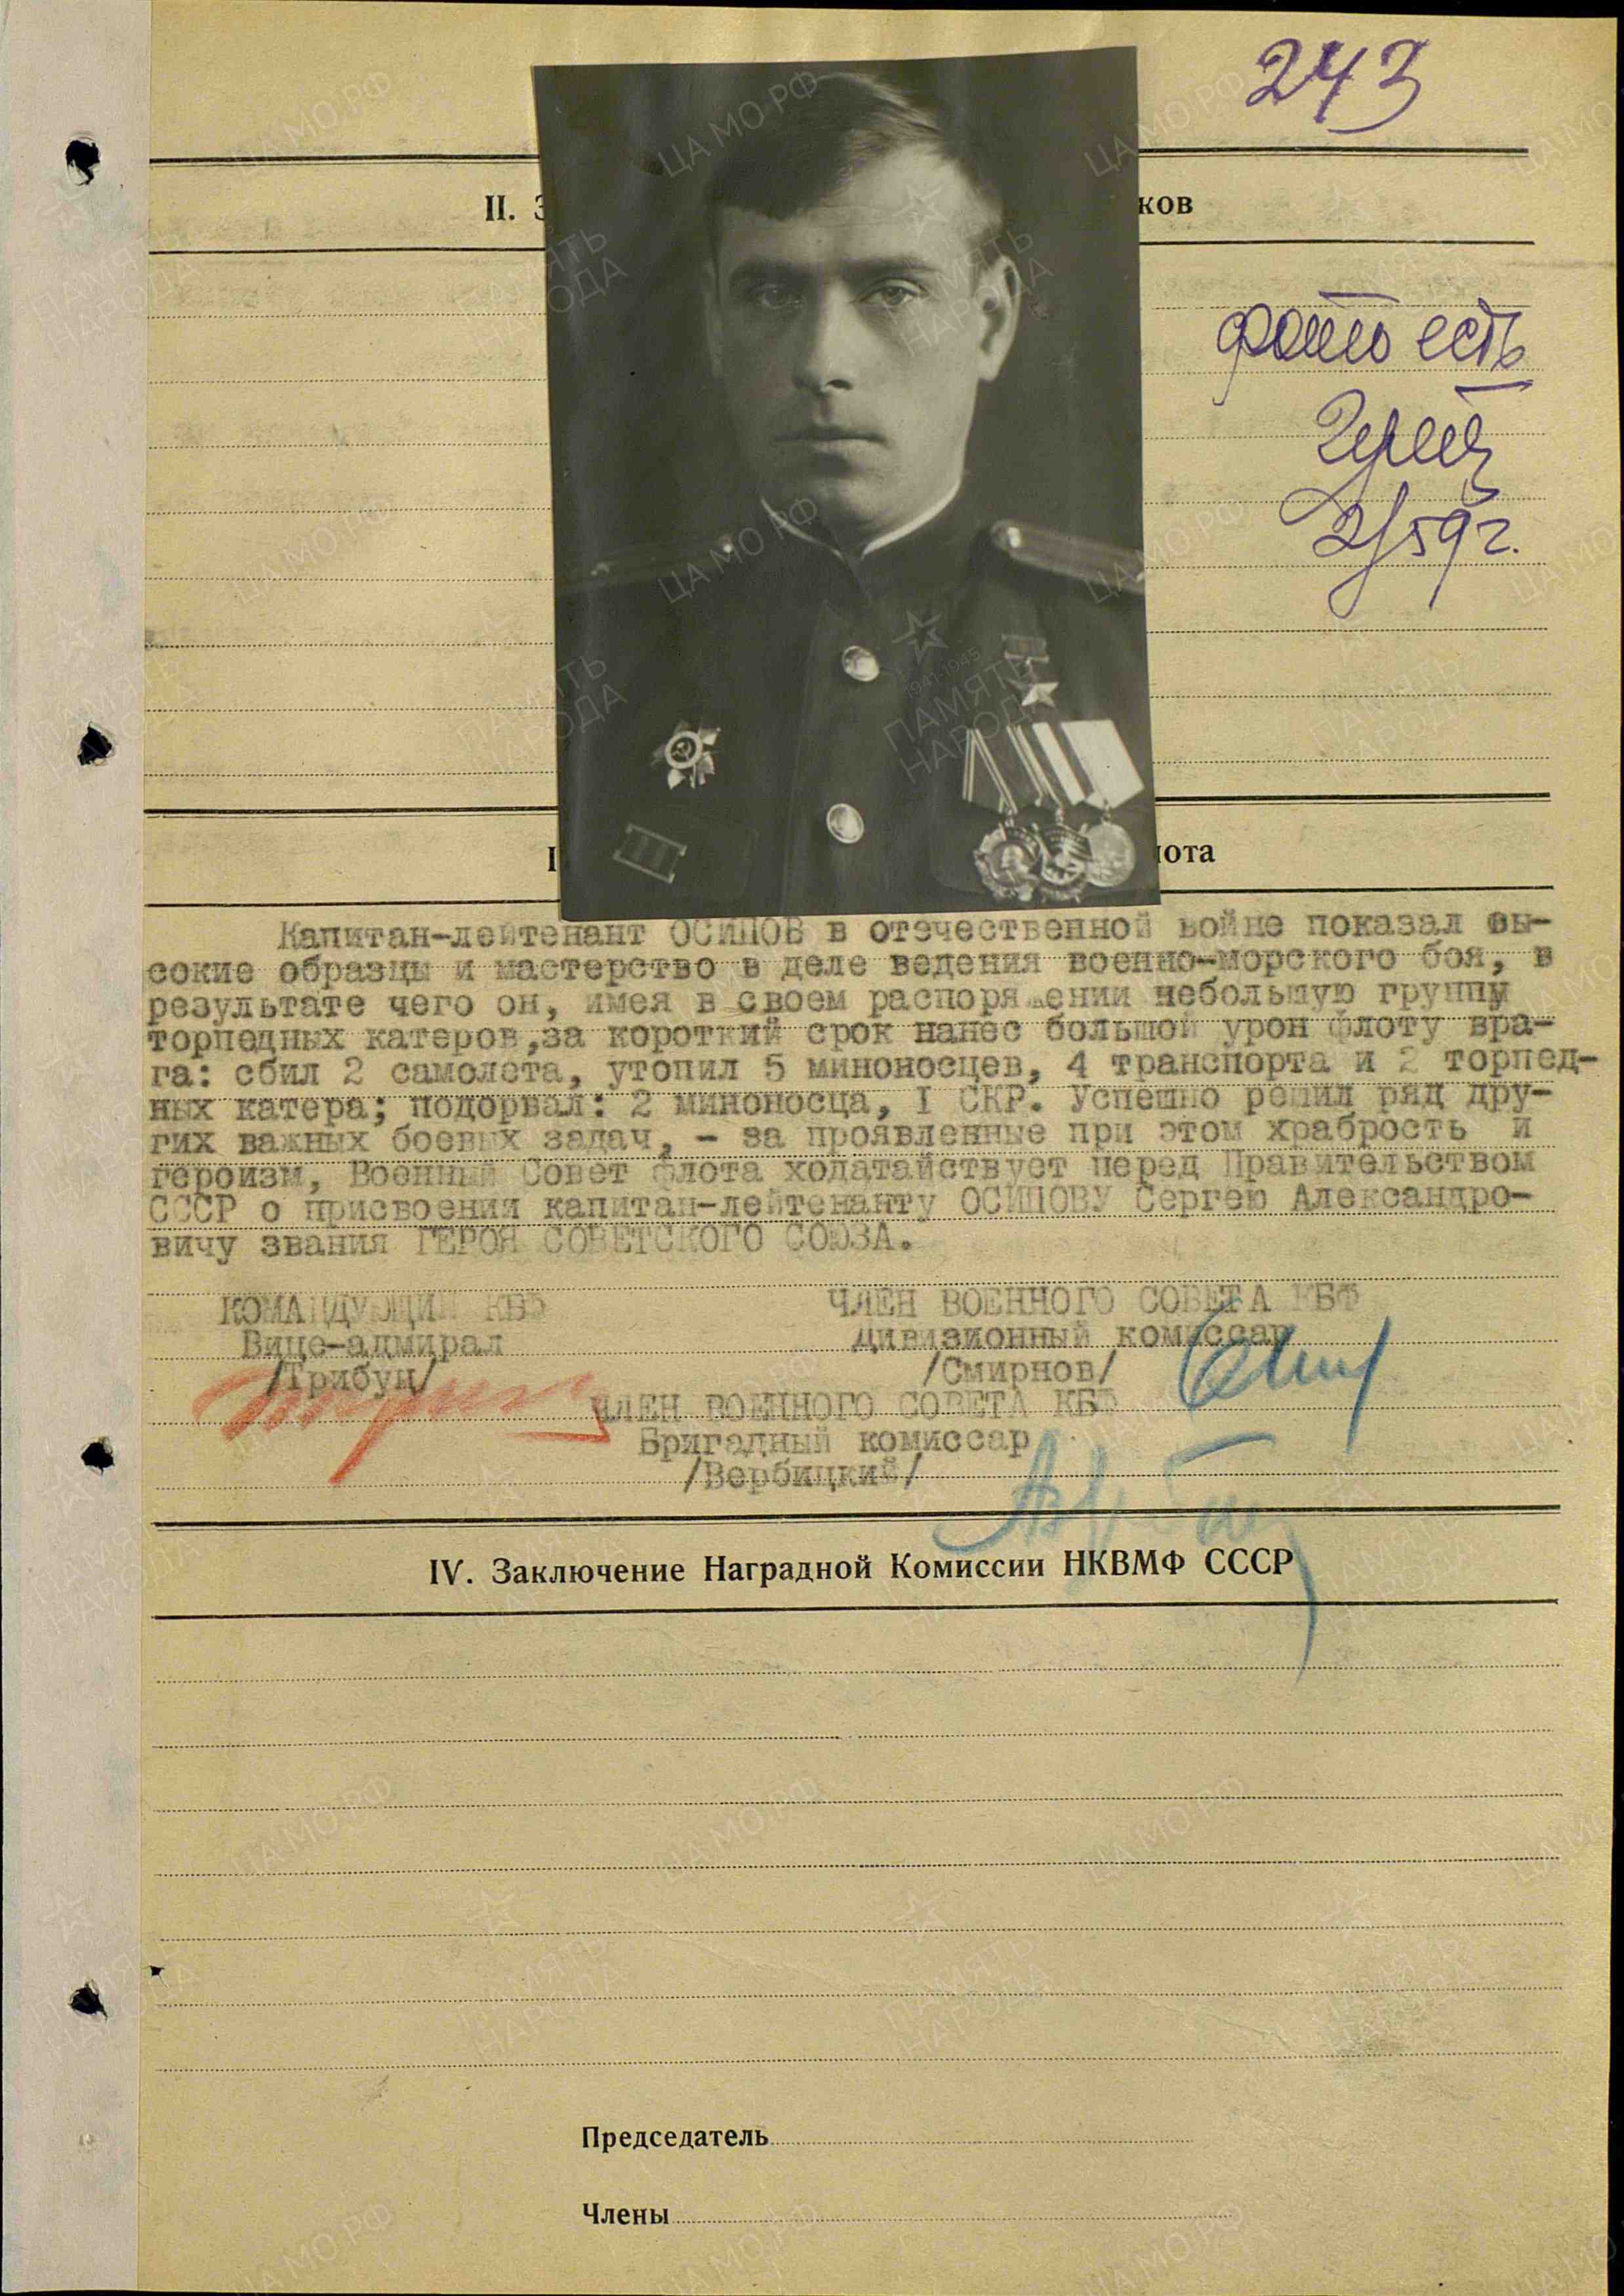 243
II. З
ков
фото есть
2/59 г.
нота
Капитан-лейтенант ОСИПОВ в отечественной войне показал вы-
сокие образцы и мастерство в деле ведения военно-морского боя, в
результате чего он, имея в своем распоряжении небольшую группу
торпедных катеров,за короткий срок нанес большой урон флоту вра-
га: сбил 2 самолета, утопил 5 миноносцев, 4 транспорта и 2 торпед-
ных катера; подорвал: 2 миноносца, I СКР. Успешно решил ряд дру-
гих важных боевых задач, - за проявленные при этом храбрость и
героизм, Военный Совет флота ходатайствует перед Правительством
СССР о присвоении капитан-лейтенанту ОСИПОВУ Сергею Александро-
вичу звания ГЕРОЯ СОВЕТСКОГО СОЮЗА.
КОМАНДУЮЩИЙ КБФ
Вице-адмирал
/Трибуц/
ЧЛЕН ВОЕННОГО СОВЕТА КБФ
дивизионный комиссар
/Смирнов/
ЧЛЕН ВОЕННОГО СОВЕТА КБФ
Бригадный комиссар
/Вербицкий/
IV. Заключение Наградной Комиссии НКВМФ СССР
Председатель
Члены
ЦА МО РФ
1941-1945
ПАМЯТЬ
НАРОДА